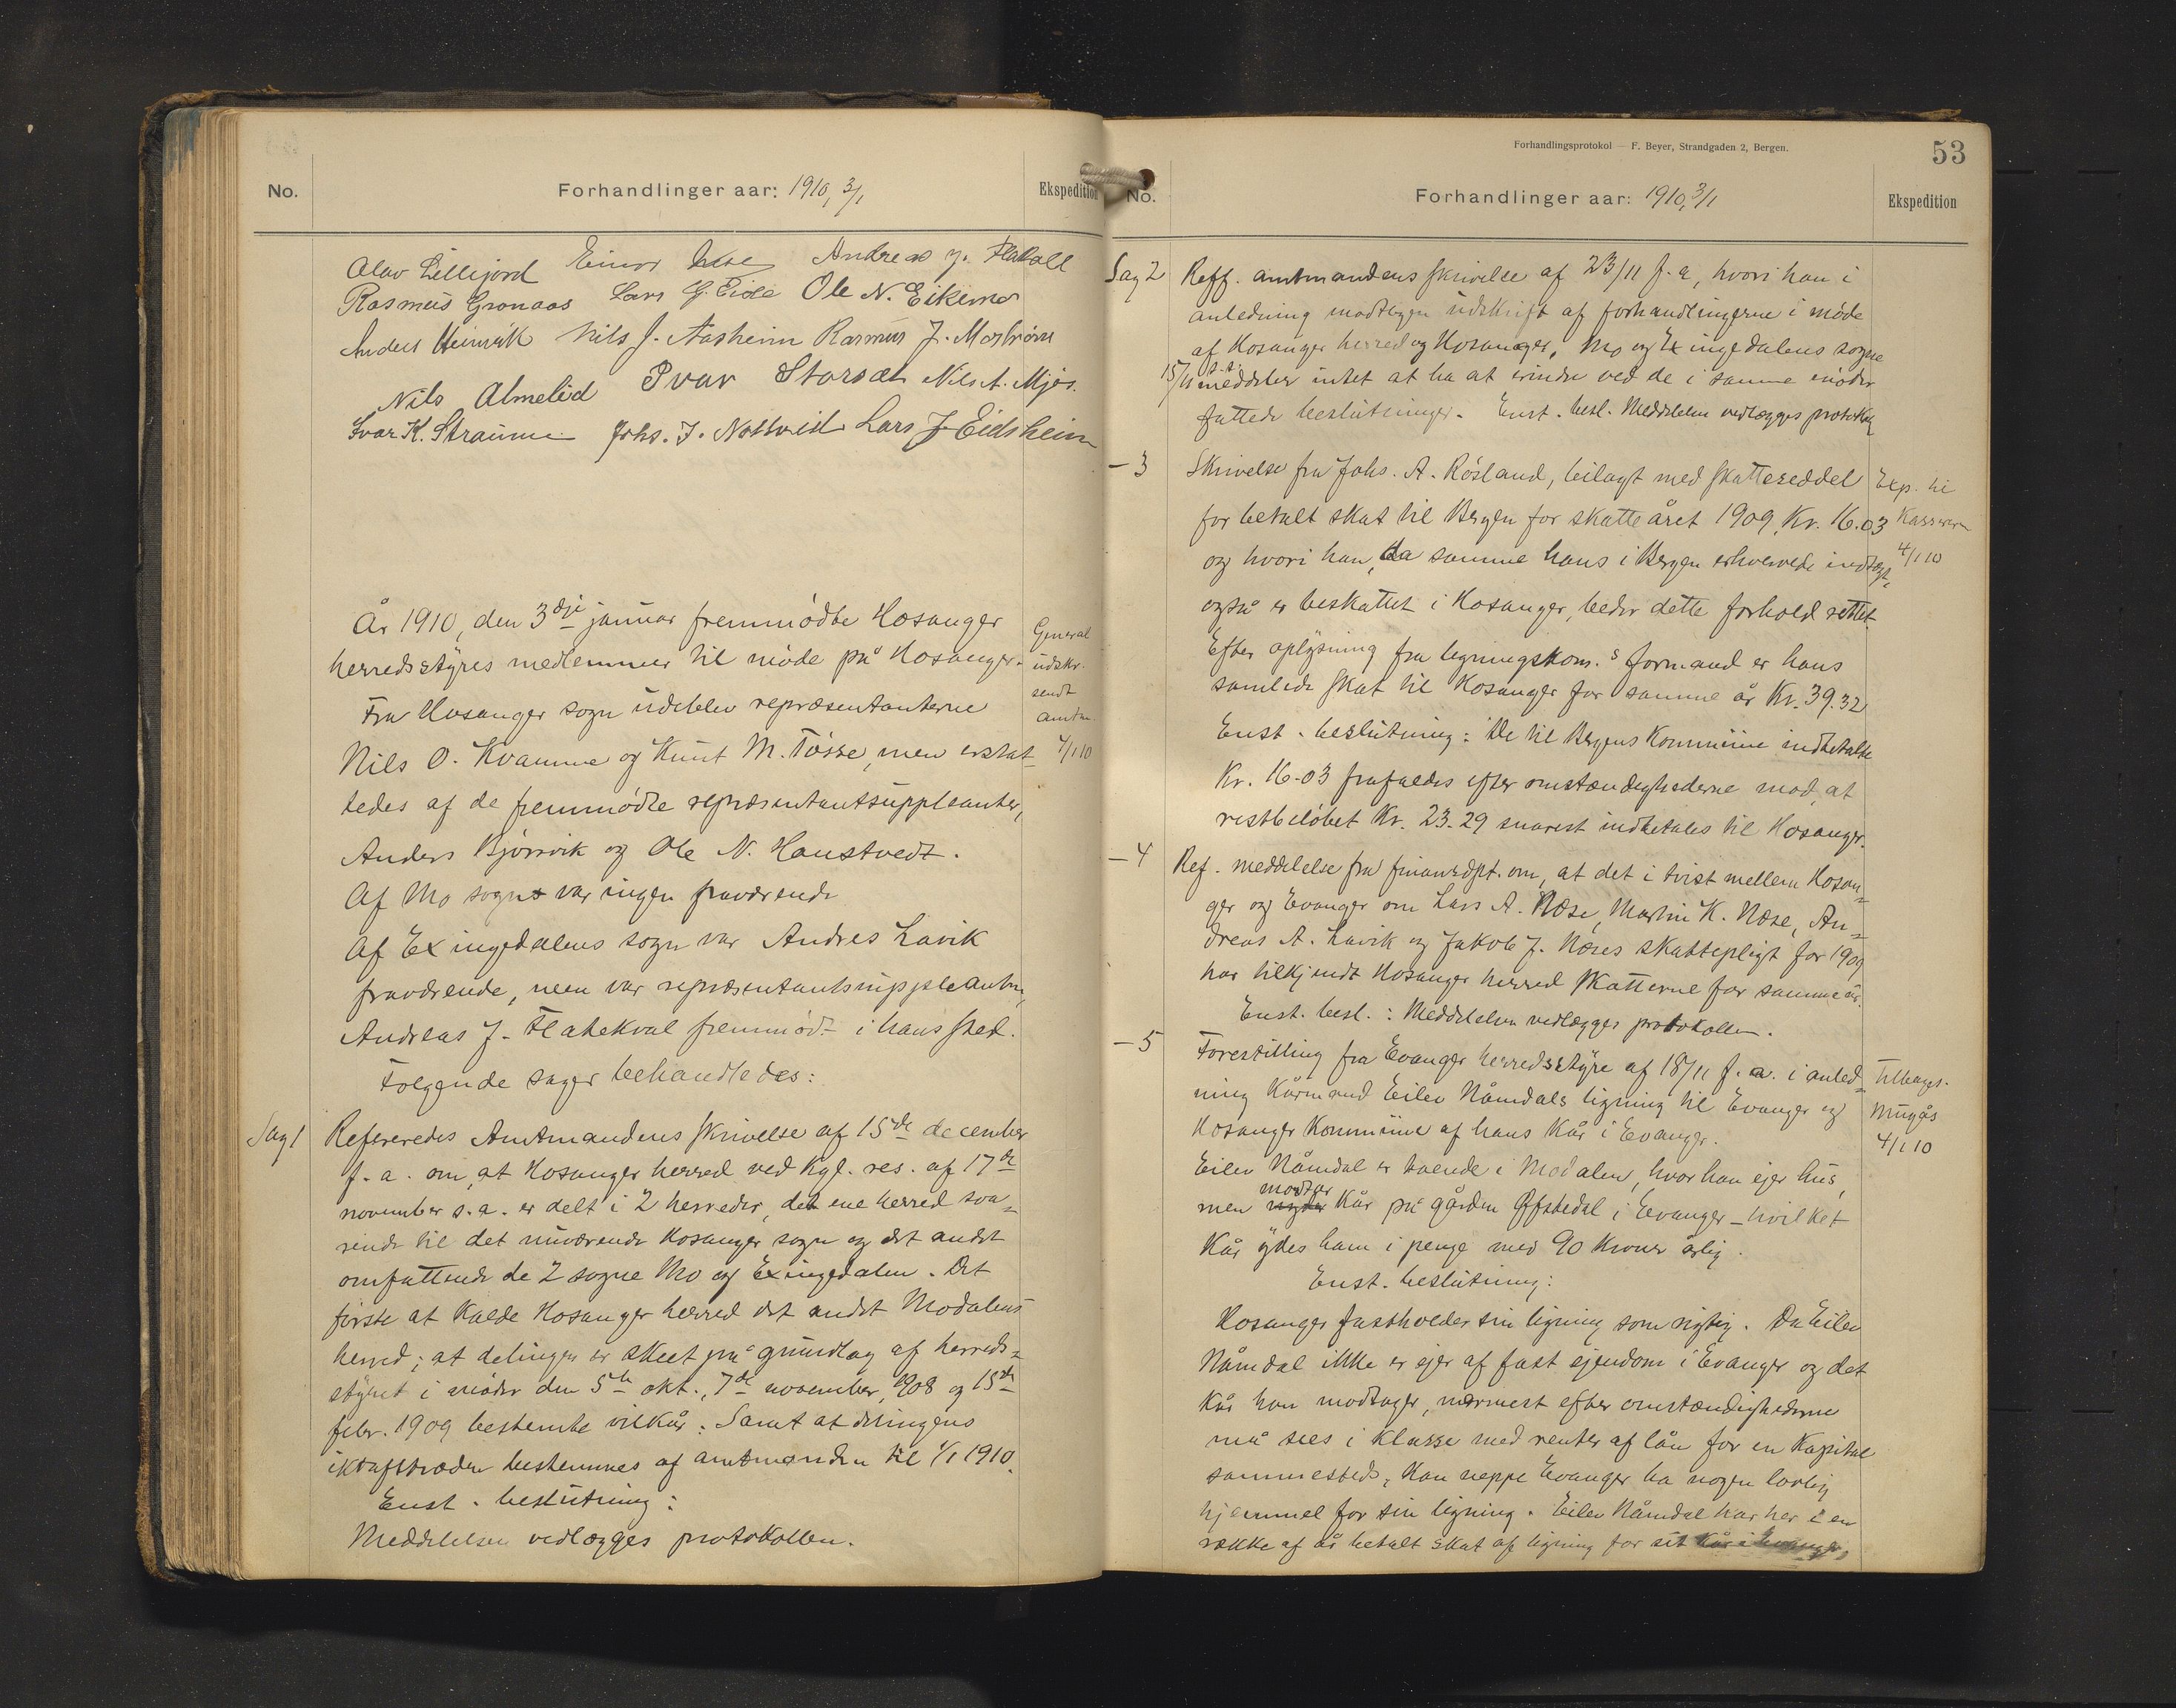 No.
Forhandlinger aar: 1910, 3/1
Ekspedition
Olav Lillejord Einar Andreas J. Flatekll
Rasmus Gronaas Lars G. Eide Ole N. Eikemo
Anders Heimvik Nils J. Aasheim Rasmus J. Mostrøm
Nils Almelid Ivar Storset Nils A. Mjøs.
Ivar K. Straume Johs. J. Lars J. Eidsheim
År 1910, den 3dje januar fremmødte Hosanger
herredsstyres medlemmer til møde på Hosanger.
Fra Hosanger sogn udeblev repræsentanterne
Nils O. Kvamme og Knut M. Tøsse, men erstat-
tedes af de fremmødte repræsentantsuppleanter,
Anders Bjørsvik og Ole N. Haustvedt.
Af Mo sogn var ingen fraværende
Af Exingedalens sogn var Andres Lavik
fraværende, men var repræsentantsuppleanten,
Andreas J. Flatekval fremmødt i hans sted.
Følgende sager behandledes:
General
udskr.
sendt
amtm.
4/1 10
Sag 1
Refereredes Amtmandens skrivelse af 15de december
f. a. om, at Hosanger herred ved Kgl. res. af 17de
november s. a. er delt i 2 herreder, det ene herred sva-
rende til det nuværende Hosanger sogn og det andet
omfattende de 2 sogne Mo og Exingedalen. Det
første at kalde Hosanger herred det andet Modalens
herred; at delingen er skeet på grundlag af herreds-
styret i møder den 5te okt., 7de november 1908 og 15de
febr. 1909 bestemte vilkår: Samt at delingens
ikrafttræden bestemmes af amtmanden til 1/1 1910.
Enst. beslutning:
Meddelelsen vedlægges protokollen.
Forhandlingsprotokol — F. Beyer, Strandgaden 2, Bergen.
53
No.
Forhandlinger aar: 1910, 3/1
Ekspedition
Sag 2
Reff. amtmandens skrivelse af 23/11 f. a, hvori han i
anledning modtagen udskrift af forhandlingerne i møde
af Hosanger herred og Hosanger, Mo og Exingedalens sogne
15/11 s. a. meddeler intet at ha at erindre ved de i samme møder
fattede beslutninger. Enst. besl. Meddelelsen vedlægges protokol
— 3
Skrivelse fra Johs. A. Røsland, bilagt med skatteseddel
for betalt skat til Bergen for skatteåret 1909, Kr. 16.03
og hvori han, da samme hans i Bergen erhvervede indtægt,
også er beskattet i Hosanger, beder dette forhold rettet.
Efter oplysning fra ligningskom.s formand er hans
samlede skat til Hosanger for samme år Kr. 39.32
Enst. beslutning: De til Bergens Kommune indbetalte
Kr. 16-03 frafaldes efter omstændighederne mod, at
restbeløbet Kr. 23.29 snarest indbetales til Hosanger.
Exp. til
Kassereren
4/1 10
— 4
Ref. meddelelse fra finansdpt. om, at det i tvist mellem Hosan-
ger og Evanger om Lars A. Næse, Martin K. Næse, An-
dreas A. Lavik og Jakob J. Næses skattepligt for 1909
har tilkjendt Hosanger herred skatterne for samme år.
Enst. besl.: Meddelelsen vedlægges protokollen.
— 5
Forestilling fra Evanger herredsstyre af 18/11 f. a. i anled-
ning Kårmand Eilev Nåmdals ligning til Evanger og
Hosanger Kommune af hans Kår i Evanger.
Eilev Nåmdal er boende i Modalen, hvor han ejer hus,
men nyder modtar Kår på gården Offstedal i Evanger – hvilket
Kår ydes ham i penge med 90 Kroner årlig.
Enst. beslutning:
Hosanger fastholder sin ligning som rigtig. Da Eilev
Nåmdal ikke er ejer af fast ejendom i Evanger og det
Kår han modtager, nærmest efter omstændighederne
må sees i klasse med renter af lån for en Kapital
sammesteds, kan neppe Evanger ha nogen lovlig
hjemmel for sin ligning. Eilev Nåmdal har her i en
række af år betalt skat af ligning for sit Kår i Evanger,
Tilbages.
4/1 10